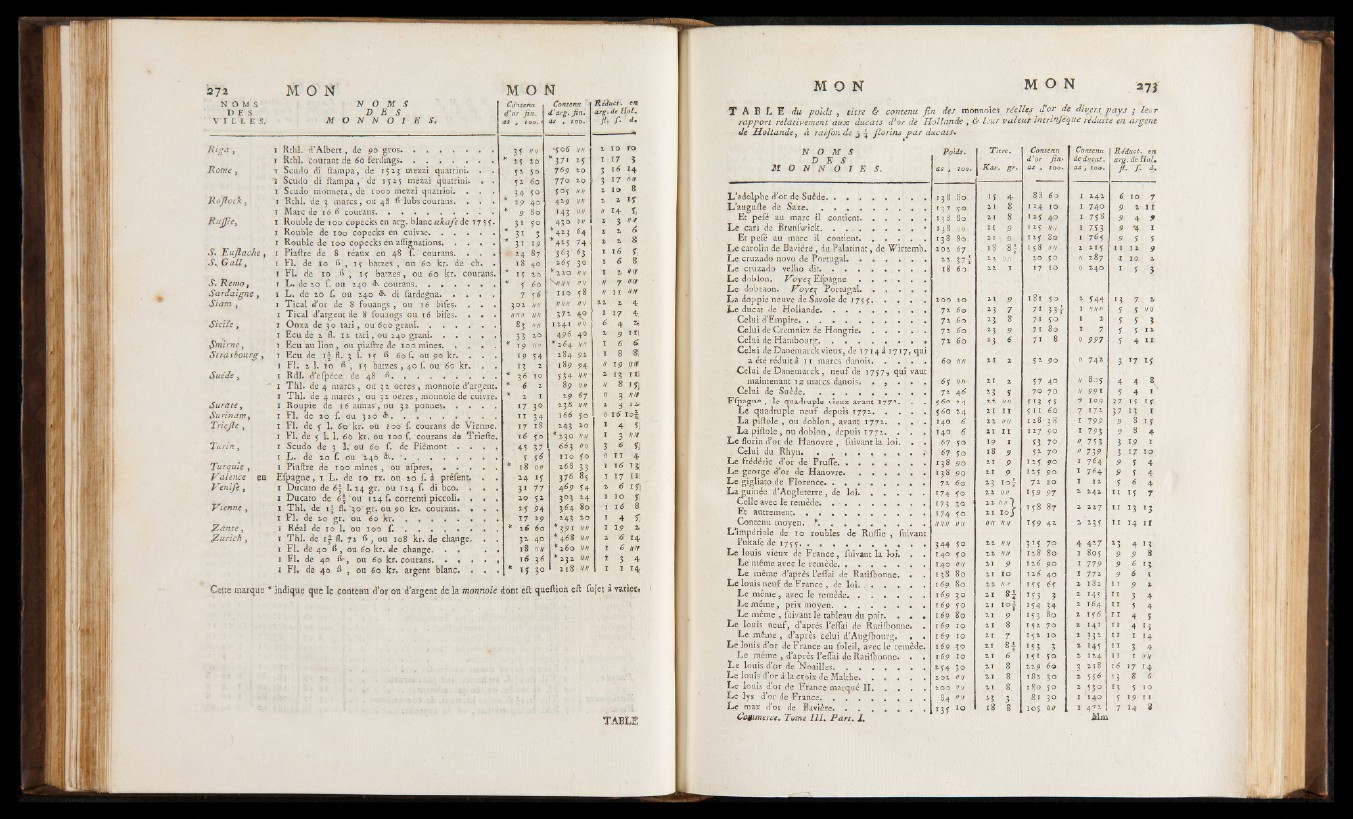 272 MON MON
NOMS DES VILLES. NOMS DES MONNOIES. Contenu d'or fin. as , 100. Contenu d'arg. fin. as , 100. Réduct. en arg. de Hol. fl. f. d.
Riga , 1 Rchl. d'Albert, de 90 gros. 35 〃 506 〃 2 10 10
1 Rchl. courant de 60 ferdings. * 25 20 * 371 25 1 17 3
Rome , 1 Scudo di stampa, de 1523 mezzi quatrini. 52 50 769 20 3 16 14
1 Scudo di stampa , de 1525 mezzi quatrini. 52 60 770 20 3 17 〃
1 Scudo moneta, de 1000 mezzi quatrini. 34 50 505 〃 2 10 8
Rostock , 1 Rchl. de 3 marcs, ou 48 ß lubs courans. * 29 40 429 〃 2 2 15
1 Marc de 16 ß courans. 9 80 143 〃 〃 14 5
Russie, 1 Rouble de 100 copecks en arg. blanc ukase de 1755. * 31 50 430 〃 2 3 〃
1 Rouble de 100 copecks en cuivre. * 31 3 * 423 64 2 2 6
1 Rouble de 100 copecks en assignations. * 31 19 * 425 74 2 2 8
S. Eustache , 1 Piastre de 8 réaux en 48 f. courans. 24 87 363 63 1 16 5
S. Gall, 1 Fl. de 10 ß , 15 batzes , ou 60 kr. de ch. 18 40 265 30 1 6 8
1 Fl. de 10 ß , 15 batzes, ou 60 kr. courans. * 15 20 * 220 〃 1 2 〃
S. Remo, 1 L. de 20 f. ou 240 d. courans. * 5 60 〃 7 〃
Sardaigne , 1 L. de 20 f. ou 240 d. di sardegna. 7 56 110 58 〃 11 〃
Siam , 1 Tical d'or de 8 fouangs , ou 16 bises. 302 〃 〃 〃 22 2 4
1 Tical d'argent de 8 fouangs ou 16 bises. 〃 〃 372 40 1 17 4
Sicile , 1 Onza de 30 tari , ou 600 grani. 83 〃 1241 〃 6 4 2
1 Ecu de 2 fl. 12 tari , ou 240 grani. 33 20 496 40 2 9 11
Smirne , 1 Ecu au lion , ou piastre de 100 mines. * 19 〃 * 264 〃 1 6 6
Strasbourg , 1 Ecu de 1½ fl. 3 l. 15 ß 60 f. ou 90 kr. 19 54 284 92 1 8 8
1 Fl. 2 l. 10 ß , 15 batzes , 40 f. ou 60 kr. 13 2 189 94 〃 19 〃
Suéde , 1 Rdl. d'espéce de 48 ß. * 36 10 534 〃 2 13 11
1 Thl. de 4 marcs , ou 32 oeres , monnoie d'argent. * 6 2 89 〃 〃 8 15
1 Thl. de 4 marcs , ou 32 oeres, monnoie de cuivre. * 2 1 29 67 0 3 〃
Surate , 1 Roupie de 16 annas, ou 32 ponnes. 17 30 238 〃 1 3 12
Surinam, 1 Fl. de 20 f. ou 320 d. 11 34 166 50 0 16 10½
Trieste, 1 Fl. de 5 l. 60 kr. ou 100 f. courans de Vienne. 17 18 243 20 1 4 5
1 Fl. de 5 l. l. 60 kr. ou 100 f. courans de Trieste. 16 50 * 230 〃 1 3 〃
Turin , 1 Scudo de 3 l. ou 60 f. de Piémont 45 37 663 〃 3 6 5
1 L. de 20 f. ou 240 d. 5 56 110 50 0 11 4
Turquie , 1 Piastre de 100 mines , ou aspres. * 18 〃 268 33 1 16 13
Valence en Espagne , 1 L. de 10 rx. ou 20 f. à présent. 24 15 376 85 1 17 11
Venise , 1 Ducato de 6⅕ l. 24 gr. ou 124 f. di bco. 31 77 469 54 2 6 15
1 Ducato de 6⅕ ou 124 f. correnti piccoli. 20 52 303 24 1 10 5
Vienne , 1 Thl. de 1½ fl. 30 gr. ou 90 kr. courans. 25 94 364 80 1 16 8
1 Fl. de 20 gr. ou 60 kr. 17 29 243 20 1 4 5
Zante , 1 Réal de 10 l. ou 100 f. * 26 60 * 391 〃 1 19 2
Zurich , 1 Thl. de 1½ fl. 72 ß , ou 108 kr. de change. 32 40 * 468 〃 2 6 14
1 Fl. de 40 ß , ou 60 kr. de change. 18 〃 * 260 〃 1 6 〃
1 Fl. de 40 ß , ou 60 kr. courans. 16 36 * 232 〃 1 3 4
1 Fl. de 40 ß , ou 60 kr. argent blanc. * 15 30 218 〃 1 1 14
Cette marque * indique que le contenu d'or ou d'argent de la monnoie dont est question est sujet à varier.
TABLE
MON MON 273
TABLE du poids , titre & contenu fin des monnoies réelles d'or de divers pays ; leur
rapport relativement aux ducats d'or de Hollande , & leur valeur intrinséque réduite en argent
de Hollande, à raison de 5 ¼ florins par ducats.
NOMS DES MONNOIES. Poids. as , 100. Titre. Kar. gr. Contenu d'or fin. as , 100. Contenu de ducat. as , 100. Réduct. en arg. de Hol. fl. f. d.
L'adolphe d'or de Suéde. 138 80 15 4 88 60 1 242 6 10 7
L'auguste de Saxe. 137 50 21 8 124 10 1 740 9 2 11
Et pesé au marc il contient. 138 80 21 8 125 40 1 758 9 4 9
Le carl de Brunswick. 138 〃 21 9 125 〃 1 753 9 4 1
Et pesé au marc il contient. 138 80 21 9 125 80 1 765 9 5 5
Le carolin de Baviére , du Palatinat, de Wirtemb. 202 67 18 8½ 158 〃 2 215 11 12 9
Le cruzado novo de Portugal. 22 37½ 22 〃 20 50 0 287 1 10 2
Le cruzado velho dit. 18 60 22 1 17 10 0 240 1 5 3
Le doblon. Voyez Espagne
Le dobraon. Voyez Portugal.
La doppie neuve de Savoie de 1755. 200 10 21 9 181 50 2 544 13 7 2
Le ducat de Hollande. 72 60 23 7 71 33½ 1 〃 5 5 〃
Celui d'Empire. 72 60 23 8 71 50 1 2 5 5 3
Celui de Cremnicz de Hongrie. 72 60 23 9 71 80 1 7 5 5 12
Celui de Hambourg. 72 60 23 6 71 8 0 997 5 4 11
Celui de Danemarck vieux, de 1714 à 1717, qui
a été réduit à 11 marcs danois. 60 〃 21 2 52 90 0 742 3 17 15
Celui de Danemarck , neuf de 1757, qui vaut
maintenant 12 marcs danois. 65 〃 21 2 57 40 〃 805 4 4 8
Celui de Suéde. 72 46 23 5 70 70 〃 991 5 4 1
Espagne , le quadruple vieux avant 1772. 560 24 22 〃 513 55 7 199 37 15 15
Le quadruple neuf depuis 1772. 560 24 21 11 511 60 7 172 37 13 1
La pistole , ou doblon , avant 1772. 140 6 22 〃 128 38 1 799 9 8 15
La pistole , ou doblon, depuis 1772. 140 6 21 11 127 90 1 793 9 8 4
Le florin d'or de Hanovre , suivant la loi. 67 50 19 1 53 70 〃 753 3 19 1
Celui du Rhyn. 67 50 18 9 52 70 〃 739 3 17 10
Le fréderic d'or de Prusse. 138 90 21 9 125 90 1 764 9 5 4
Le george d'or de Hanovre. 138 90 21 9 125 90 1 764 9 5 4
Le gigliato de Florence. 72 60 23 10½ 72 20 1 12 5 6 4
La guinée d'Angleterre , de loi. 174 50 22 〃 159 97 2 242 11 15 7
Celle avec le reméde. 173 30 22 〃 } 158 87 2 227 11 13 13
Et autrement. 174 50 21 10 }
Contenu moyen. 〃 〃 〃 〃 159 42 2 235 11 14 11
L'impériole de 10 roubles de Russie , suivant
l'ukase de 1755. 344 50 22 〃 315 70 4 427 23 4 13
Le louis vieux de France , suivant la loi. 140 50 22 〃 128 80 1 805 9 9 8
Le même avec le reméde. 140 〃 21 9 126 90 1 779 9 6 13
Le même d'après l'essai de Ratisbonne. 138 80 21 10 126 40 1 772 9 6 1
Le louis neuf de France , de loi. 169 80 22 〃 155 65 2 182 11 9 2
Le même , avec le reméde. 169 30 21 8½ 153 3 2 145 11 3 4
Le même , prix moyen. 169 50 21 10½ 154 34 2 164 11 5 4
Le même , suivant le tableau du pair. 169 80 21 9 153 80 2 156 11 4 5
Le louis neuf, d'après l'essai de Ratisbonne. 169 10 21 8 152 70 2 141 11 4 13
Le même , d'après celui d'Augsbourg. 169 10 21 7 152 10 2 132 11 1 14
Le louis d'or de France au soleil, avec le reméde. 169 30 21 8½ 153 3 2 145 11 3 4
Le même , d'après l'essai de Ratisbonne. 169 10 21 6 151 50 2 124 11 1 〃
Le louis d'or de Noailles. 254 30 21 8 229 60 3 218 16 17 14
Le louis d'or à la croix de Malthe. 202 〃 21 8 182 30 2 556 13 8 6
Le louis d'or de France marqué II. 200 〃 21 8 180 50 2 530 13 5 10
Le lys d'or de France. 84 〃 23 3 81 30 1 140 5 19 11
Le max d'or de Baviére. 135 10 18 8 105 〃 1 472 7 14 8
Commerce. Tome III. Part. I. Mm